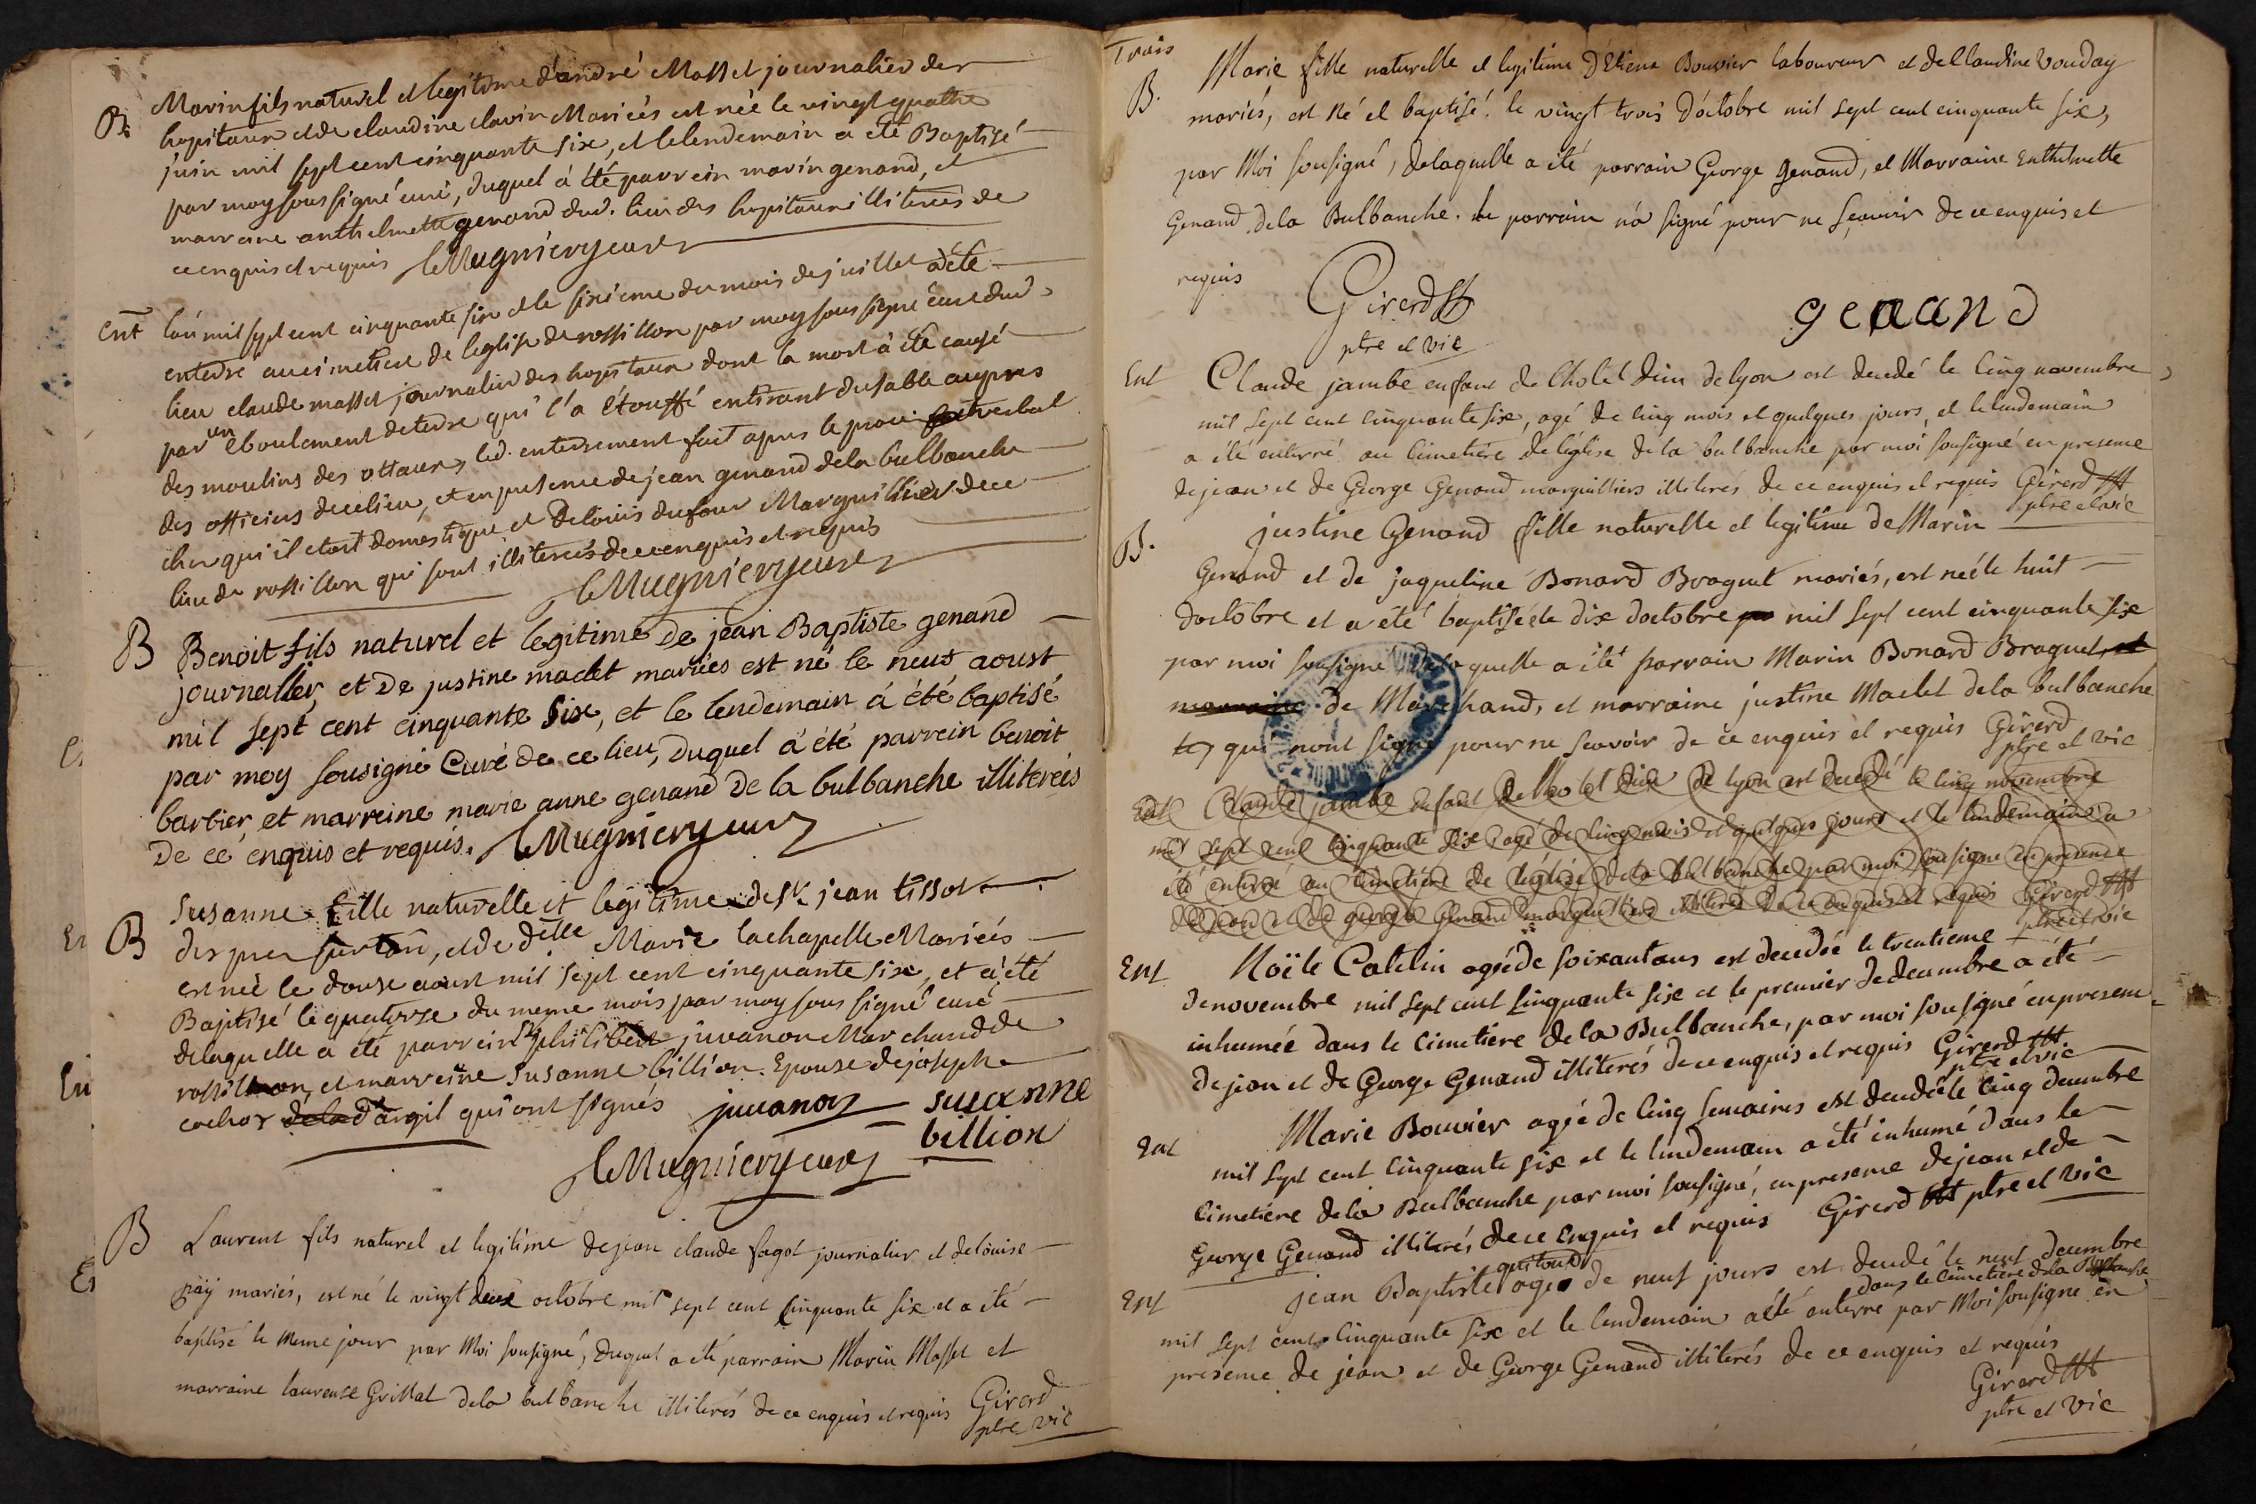 B.
Marin fils naturel et legitime d'andré Masset journalier des
hopitaux et de claudine clavin Mariés est née le vingt quatre
juin mil sept cent cinquante six, et le lendemain a eté Baptisé
par moy sous signé curé, duquel à été parrein marin genand, et
marreine anthelmette genand dud. lieu des hopitaux illiterés de
ce enquis et requis leMugniery curé
ent
lan mil sept cent cinquante six et le sixieme du mois de juillet a été
enterré au cimetiere de leglise de rossillon par moy sous signé curé dud.
lieu claude masset journalier des hopitaux dont la mort à été causé
par un eboulement de terre qui l'a étouffé en tirant du sable aupres
des moulins des ottaux, led. enterrement fait apres le proces verbal
des officiers de ce lieu, et en presence de jean genand de la bulbanche
chez qui il etoit domestique et De louis dufour Marguillier de ce
lieu de rossillon qui sont illiterés de ce enquis et requis
leMugniery curé
B
Benoit fils naturel et legitime de jean Baptiste genand
journallier, et De justine maclet mariées est né le neuf aoust
mil sept cent cinquante six, et le lendemain à été baptisé
par moy sousigné Curé de ce lieu, Duquel à été parrein benoit
barbier, et marreine marie anne genand De la bulbanche illiterées
De ce enquis et requis. leMugniery curé
B
Susanne fille naturelle et legitime de sr. jean tissot
et de delle Marie lachapelle Mariées
est née le douze aoust mil sept cent cinquante six, et à été
Baptisé le quatorze du meme mois par moy sous signé curé
delaquelle a été parrein sr philibert juvanon Marchand de
rossillon, et marreine Susanne billion. Epouse de joseph
cochos d'argil qui ont signés juvanon susanne
billion
leMugniery curé
B
Laurent fils naturel et legitime de jean claude fagot journalier et de louise
pay mariés, est né le vingt deux octobre mil sept cent cinquante six et a été
baptisé le meme jour par Moi sousigné, duquel a été parrain Marin Masset et
marraine laurense Grillat dela bulbanche illiterés de ce enquis et requis Girerd
ptre vic
Trois
B.
Marie fille naturelle et legitime D'Etiene Bouvier laboureur et de Claudine Vouday
mariés, est né et baptisé. le vingt trois D'octobre mil sept cent cinquante six,
par Moi sousigné, delaquelle a été parrain George Genand, et Marraine Enthelmette
Genand. dela Bulbanche. le parrain n'a signé pour ne sçavoir de ce enquis et
requis Girerd
ptre et vic
genand
Ent
Claude jambe enfant de Lhotel Dieu de lyon est decedé le cinq novembre
mil sept cent cinquante six, agé de cinq mois et quelques jours, et le lendemain
a été enterré au cimetiére de léglise de la bulbanche par moi sousigné en presence
de jean et de George Genand marguilliers illiterés de ce enquis et requis Girerd
ptre et vic
B.
justine Genand fille naturelle et legitime de Marin
Genand et de jaqueline Bonard Braguet mariés, est née le huit
doctobre et a été baptisée le dix doctobre mil sept cent cinquante six
par moi sousigné delaquelle a été parrain Marin Bonard Braguet, et
marraine de Marchand, et marraine justine Maclet dela bulbanche
qui nont signé pour ne scavoir de ce enquis et requis Girerd
ptre et vic
Ent
Claude jambe enfant de lhotel dieu de lyon est decedé le cinq novembre
mil sept cent cinquante six agé de cinq mois et quelques jours et le lendemain a
été enterré au cimetiére de léglise dela bulbanche par moi sousigné en presence
de jean et de george Genand marguilliers illiterés de ce enquis et requis Girerd
ptre et vic
Ent
Noële Catelin agée de soixante ans est decedée le trentieme
de novembre mil sept cent cinquante six et le premier de decembre a été
inhumée dans le cimetiére de la Bulbanche, par moi sousigné en presence
de jean et de George Genand illiterés de ce enquis et requis Girerd
ptre et vic
Ent
Marie Bouvier agée de cinq semaines est decedée le cinq decembre
mil sept cent cinquante six et le lendemain a été inhumé dans le
cimetiére dela Bulbanche par moi sousigné, en presence de jean et de
George Genand illiterés de ce enquis et requis Girerd ptre et vic
Ent
jean Baptiste agé de neuf jours est decedé le neuf decembre
mil sept cent cinquante six et le lendemain a été enterré dans le cimetiére dela Bulbanche par Moi sousigné en
presence de jean et de George Genand illiterés de ce enquis et requis
Girerd
ptre et vic